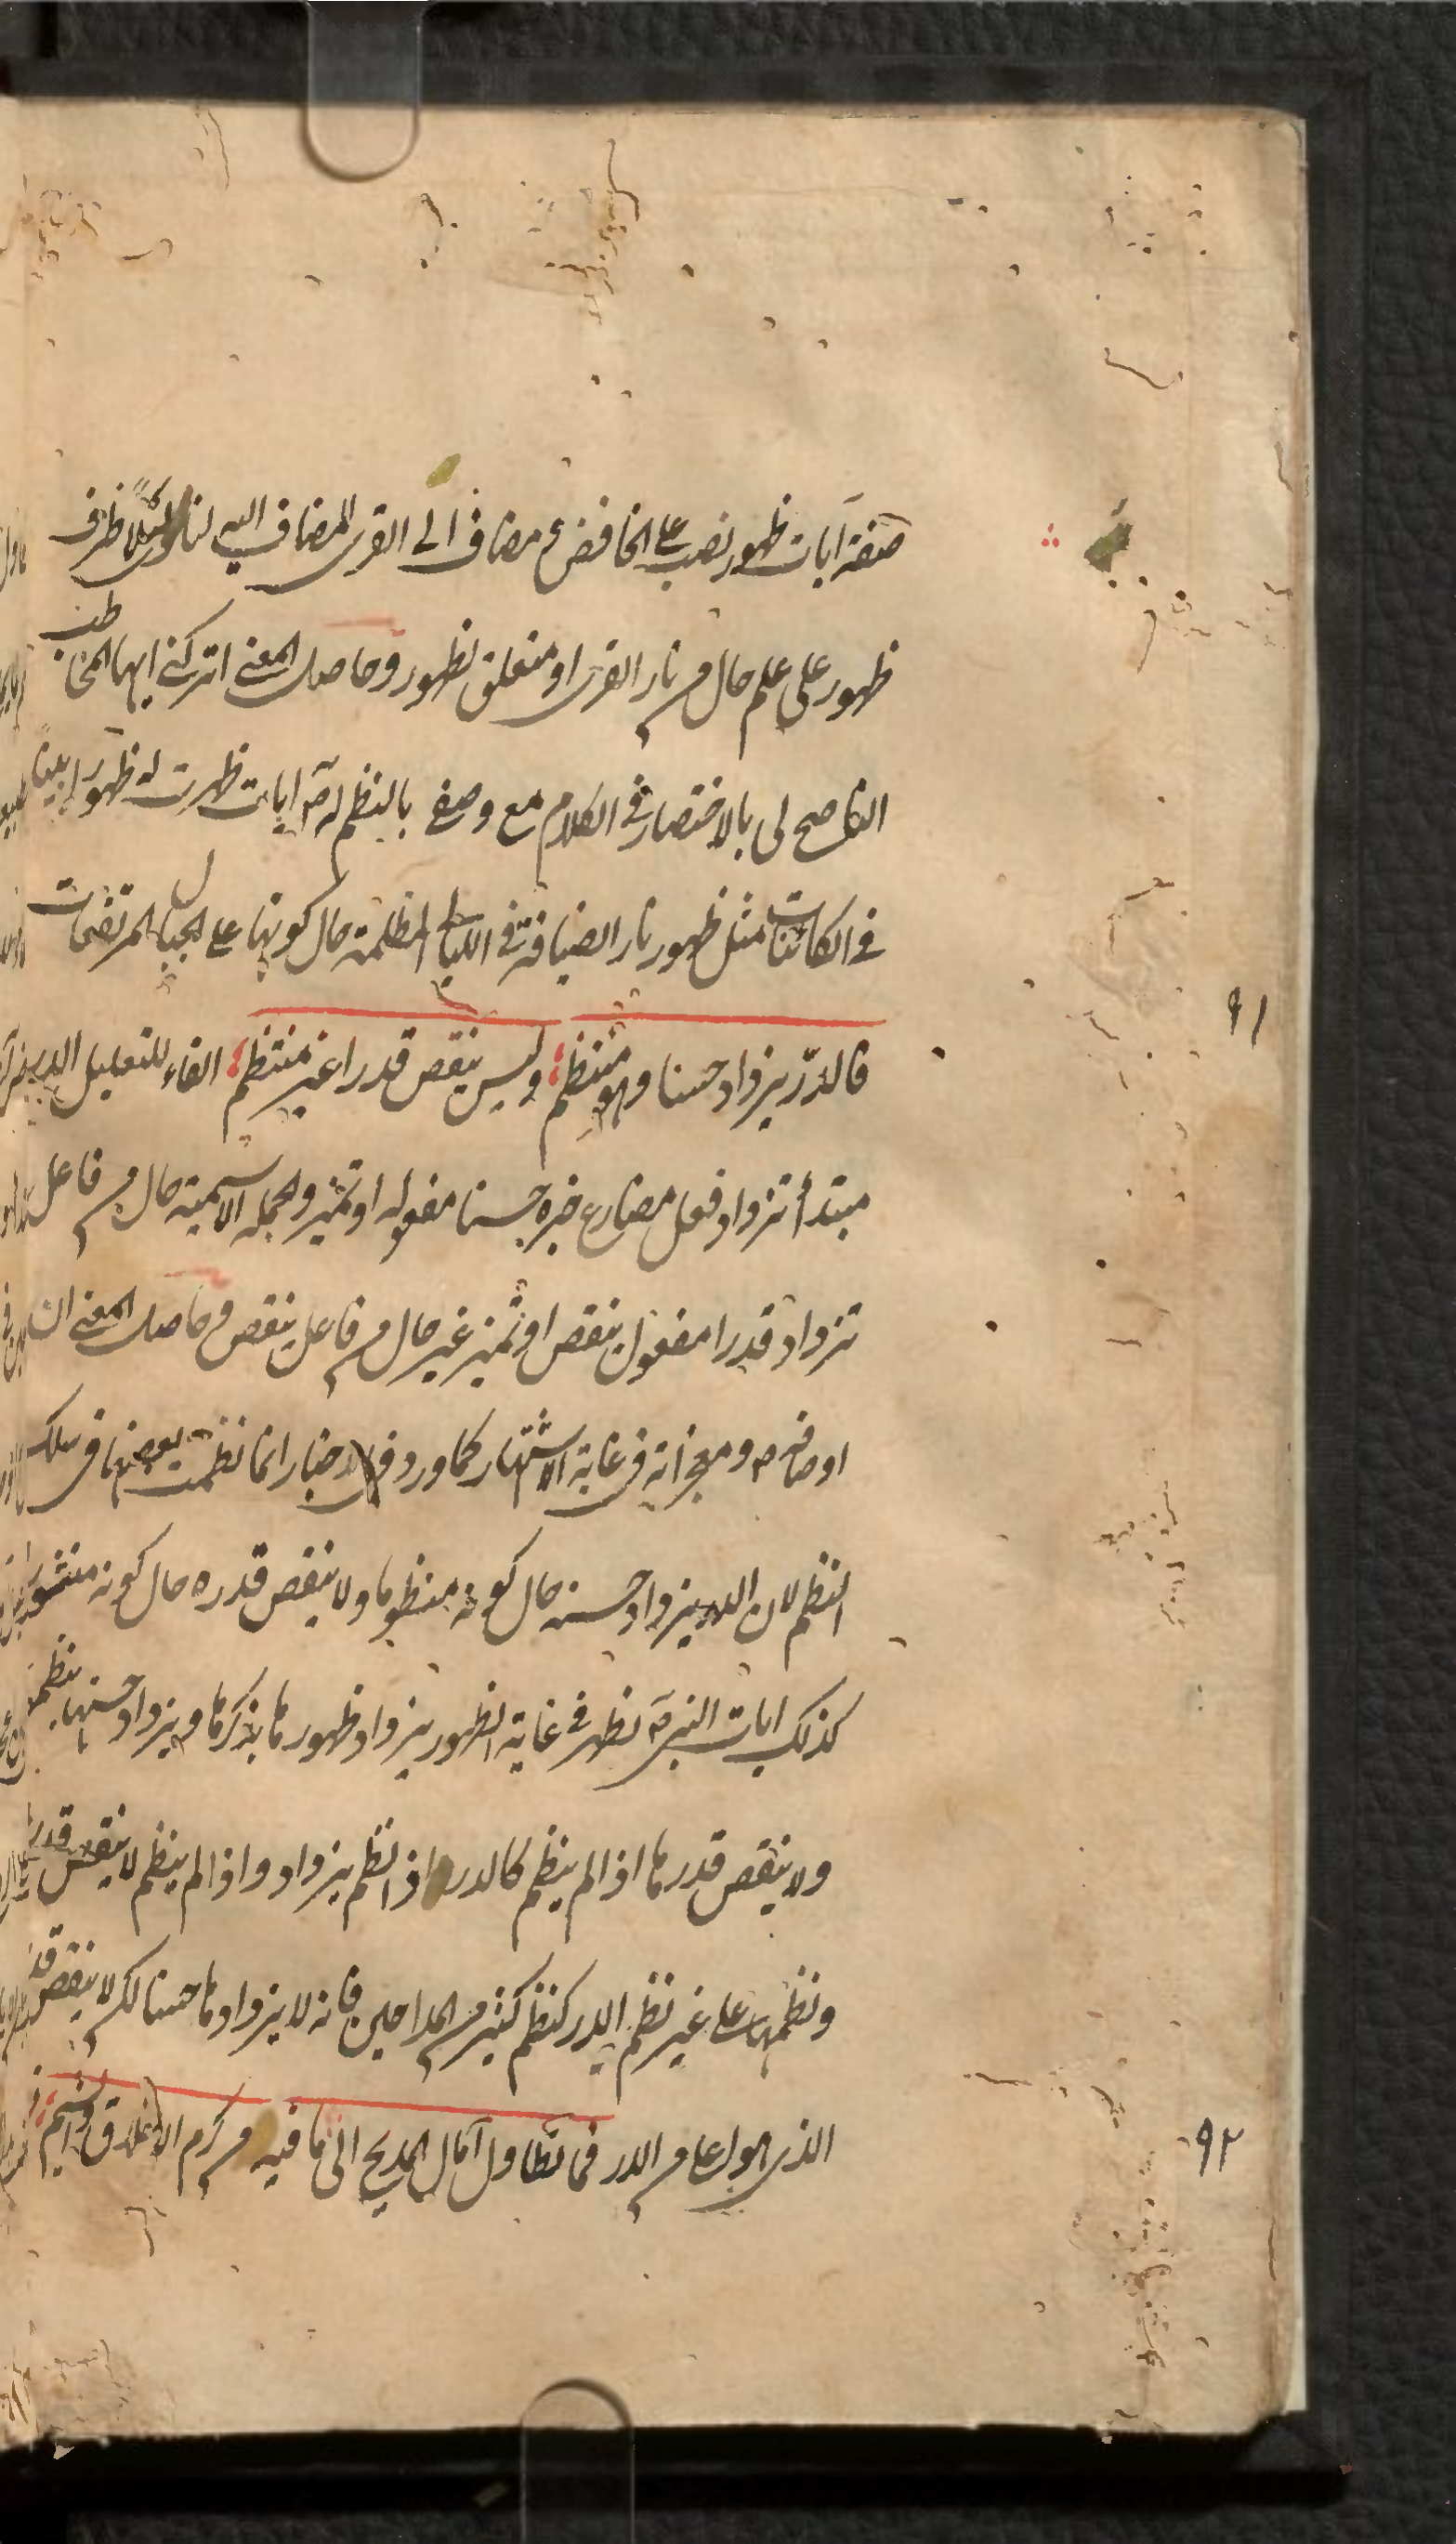 صفة آيات ظهور نصب على الخافض ع مضاف الى القرى المضاف اليه لنار ليلا ظرف
ظهور على علم حال م نار القرى او متعلق بظهور وحاصل المعنى اتركنى ايها المخاطب
الناصح لى بالاختصار فى الكلام مع وصفى بالنظم له ص ايات ظهرت له ظهورا بينا
فى الكائنات مثل ظهور نار الضيافة فى الليالى المظلمة حال كونها على الجبال المرتفعات
٩١
فالدر يزداد حسنا وهو منتظم وليس ينقص قدرا غير منتظم الفاء للتعليل الدر
مبتدأ تزداد فعل مضارع خبره حسنا مفعوله او تميز والجملة الاسمية حال م فاعل
تزداد قدرا مفعول ينقص او تميز غير حال م فاعل ينقص وحاصل المعنى ان
اوصافه ص ومعجزاته فى غاية الاشتهار كما ورد فى الاخبار انما نظمت بعضها فى سلك
النظم لان الدر يزداد حسنه حال كونه منظوما ولا ينقص قدره حال كونه منثورا
كذلك ايات النبى ص تظهر فى غاية الظهور يزداد ظهورها بذكرها ويزداد حسنها بنظمها
ولا ينقص قدرها اذا لم ينظم كالدر اذا نظم يزداد واذا لم ينظم لا ينقص قدره
ونظمها على غير نظم الدر كنظم كثير م المداحين فانه لا يزدادها حسنا لكن لا ينقص
٩٢
الذى هو اعلى م الدر فما تطاول آمال المديح الى ما فيه م كرم الاخلاق والشيم